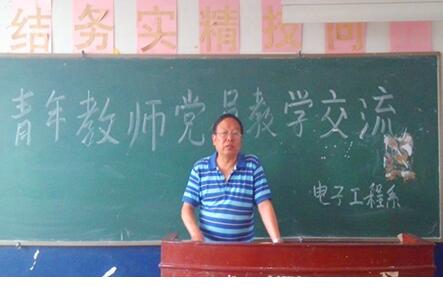 结务实精技问
青年教师党员教学交流
电子工程系